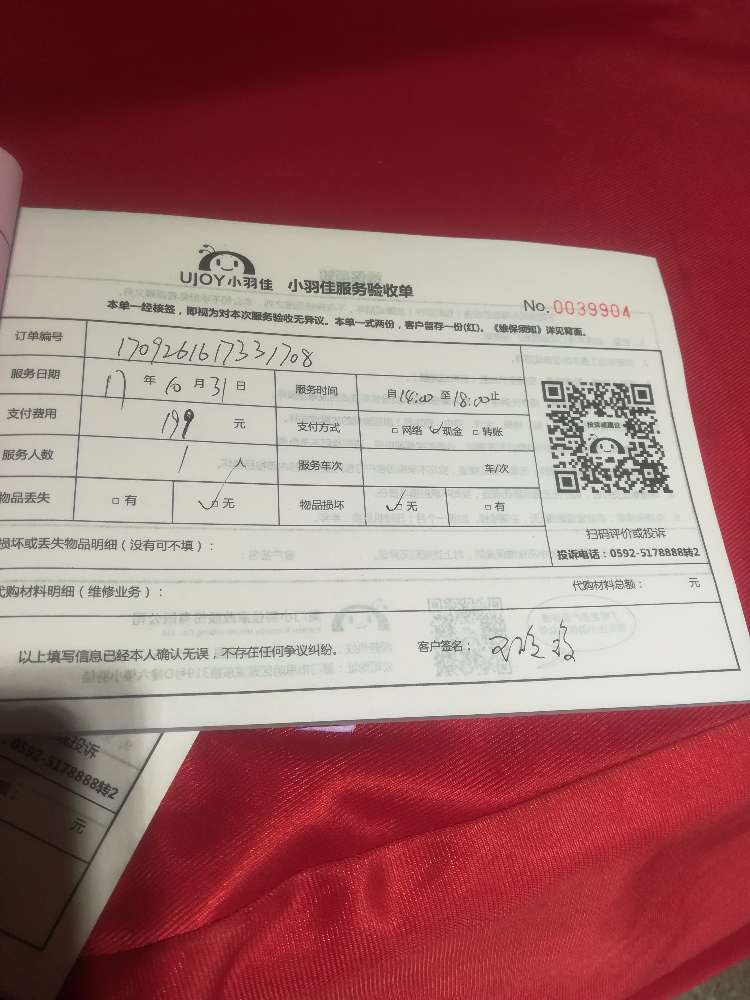 UJOY小羽佳 小羽佳服务验收单
No. 0039904
本单一经核签，即视为对本次服务验收无异议。本单一式两份，客户留存一份(红)。《维保须知》详见背面。
订单编号 1709261617331708
服务日期 17 年 10 月 31 日 服务时间 自14:00 至 18:00止
支付费用 199 元 支付方式 □网络 ✓现金 □转账
服务人数 1 人 服务车次 车/次
物品丢失 □有 ✓无 物品损坏 ✓无 □有
投诉或建议
扫码评价或投诉
投诉电话：0592-5178888转2
损坏或丢失物品明细（没有可不填）：
代购材料明细（维修业务）： 代购材料总额： 元
以上填写信息已经本人确认无误，不存在任何争议纠纷。 客户签名：
投诉
0592-5178888转2
元